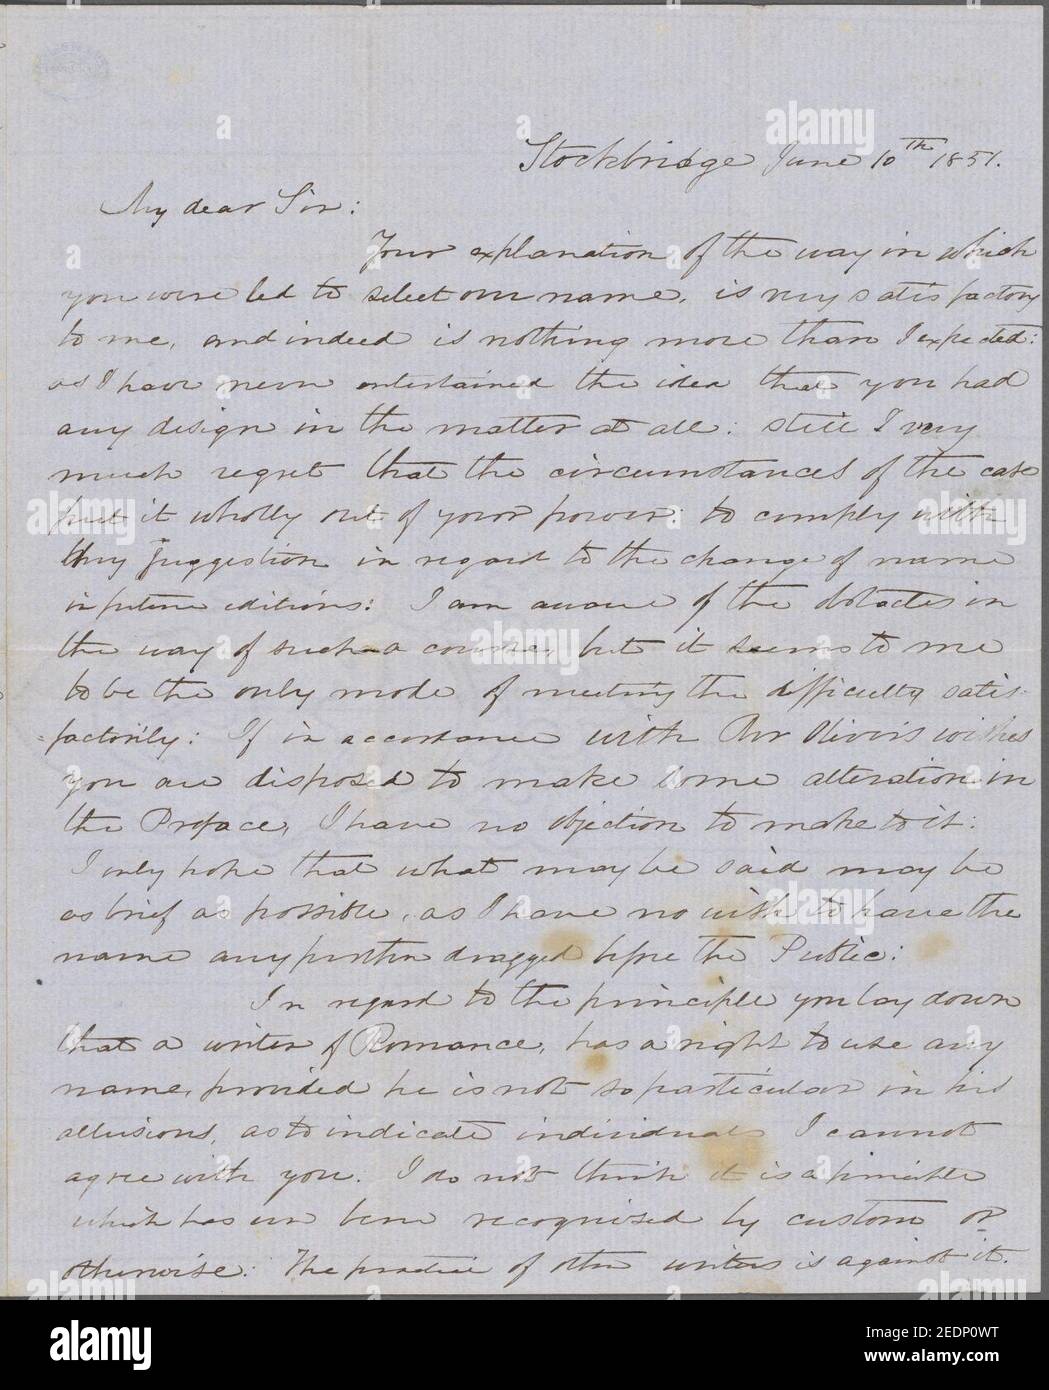 Stockbridge June 10th 1851.
My dear Sir:
Your explanation of the way in which
you were led to select our name, is very satisfactory
to me, and indeed is nothing more than I expected:
as I have never entertained the idea that you had
any design in the matter at all: still I very
much regret that the circumstances of the case
put it wholly out of your power to comply with
my suggestion in regard to the change of name
in future editions: I am aware of the obstacles in
the way of such a course, but it seems to me
to be the only mode of meeting the difficulty satis-
factorily: If in accordance with Mr Olivers wishes
you are disposed to make some alteration in
the Preface, I have no objection to make to it:
I only hope that what may be said may be
as brief as possible, as I have no wish to have the
name any further dragged before the Public:
In regard to the principle you lay down
that a writer of Romance, has a right to use any
name, provided he is not so particular in his
allusions, as to indicate individuals I cannot
agree with you. I do not think it is a principle
which has ever been recognised by custom or
otherwise: The practice of other writers is against it.
alamy
a
alamy
Image ID: 2EDP0WT
www.alamy.com